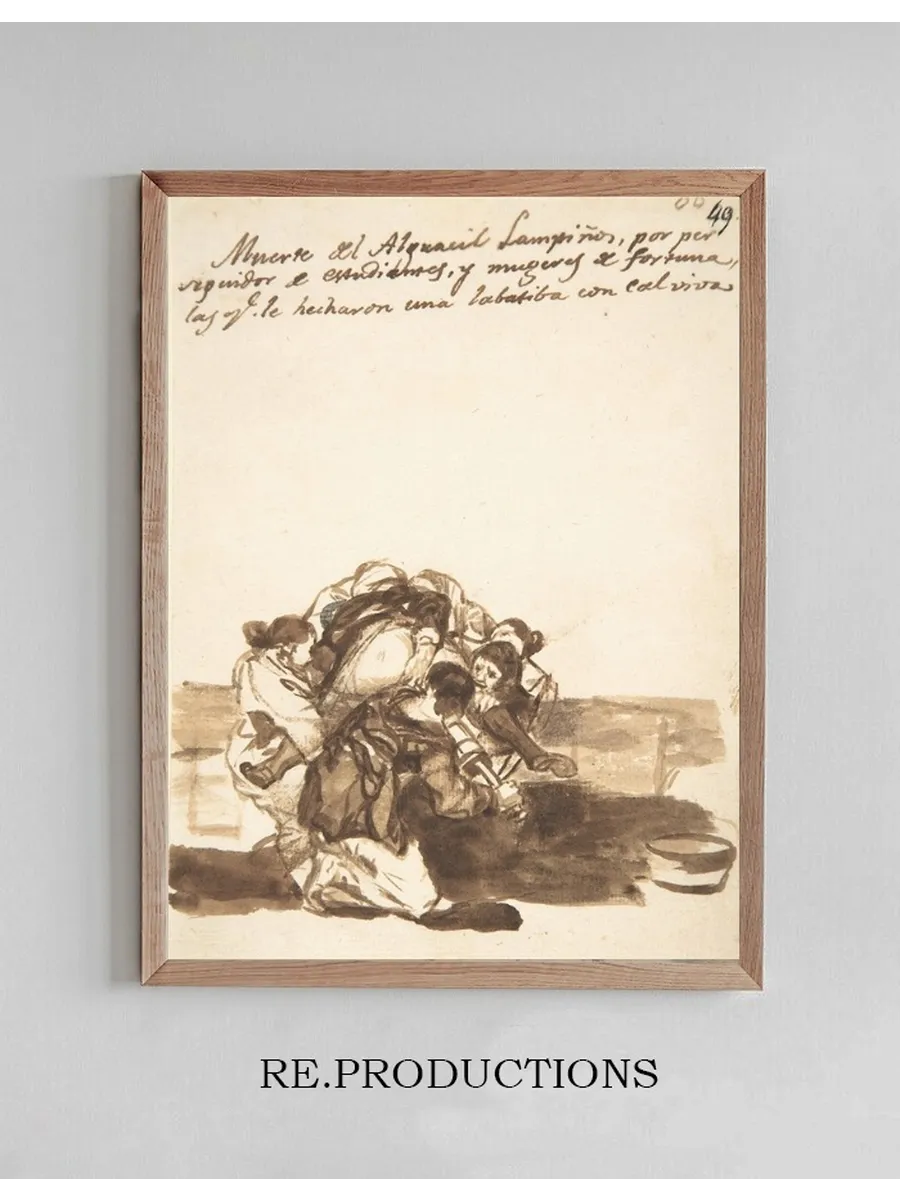 49
Muerte del Alguacil Lampiños, por per
seguidor de estudiantes, y mugeres de fortuna,
las qe. le hecharon una labatiba con Cal viva
RE.PRODUCTIONS